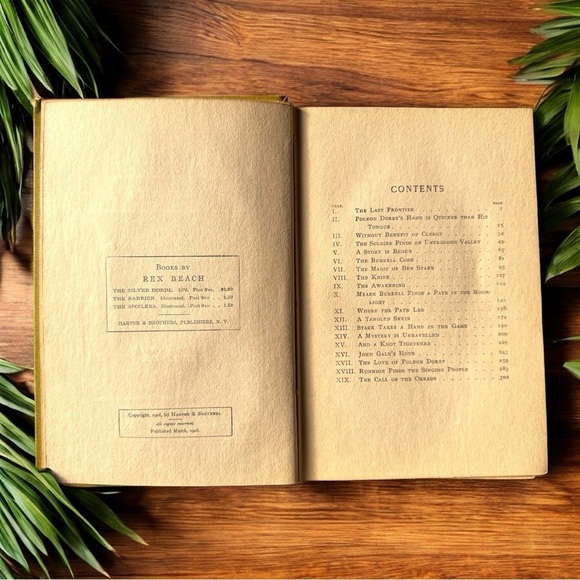 BOOKS BY
REX BEACH
THE SILVER HORDE. Ill'd. Post 8vo,
THE BARRIER. Illustrated. Post 8vo
THE SPOILERS. Illustrated. Post 8vo
HARPER & BROTHERS, PUBLISHERS, N. Y.
Copyright, 1908, by HARPER & BROTHERS.
All rights reserved.
Published March, 1908.
CONTENTS
CHAP. PAGE
I. THE LAST FRONTIER 1
II. POLEON DORET'S HAND IS QUICKER THAN HIS
TONGUE
III. WITHOUT BENEFIT OF CLERGY
IV. THE SOLDIER FINDS AN UNTRODDEN VALLEY
V. A STORY IS BEGUN 67
VI. THE BURRELL CODE 87
VII. THE MAGIC OF BEN STARK 95
VIII. THE KNIFE 107
IX. THE AWAKENING
X. MEADE BURRELL FINDS A PATH IN THE MOON-
LIGHT
XI. WHERE THE PATH LED
XII. A TANGLED SKEIN 174
XIII. STARK TAKES A HAND IN THE GAME
XIV. A MYSTERY IS UNRAVELLED 209
XV. AND A KNOT TIGHTENED
XVI. JOHN GALE'S HOUR
XVII. THE LOVE OF POLEON DORET 259
XVIII. RUNNION FINDS THE SINGING PEOPLE 283
XIX. THE CALL OF THE OREADS 302